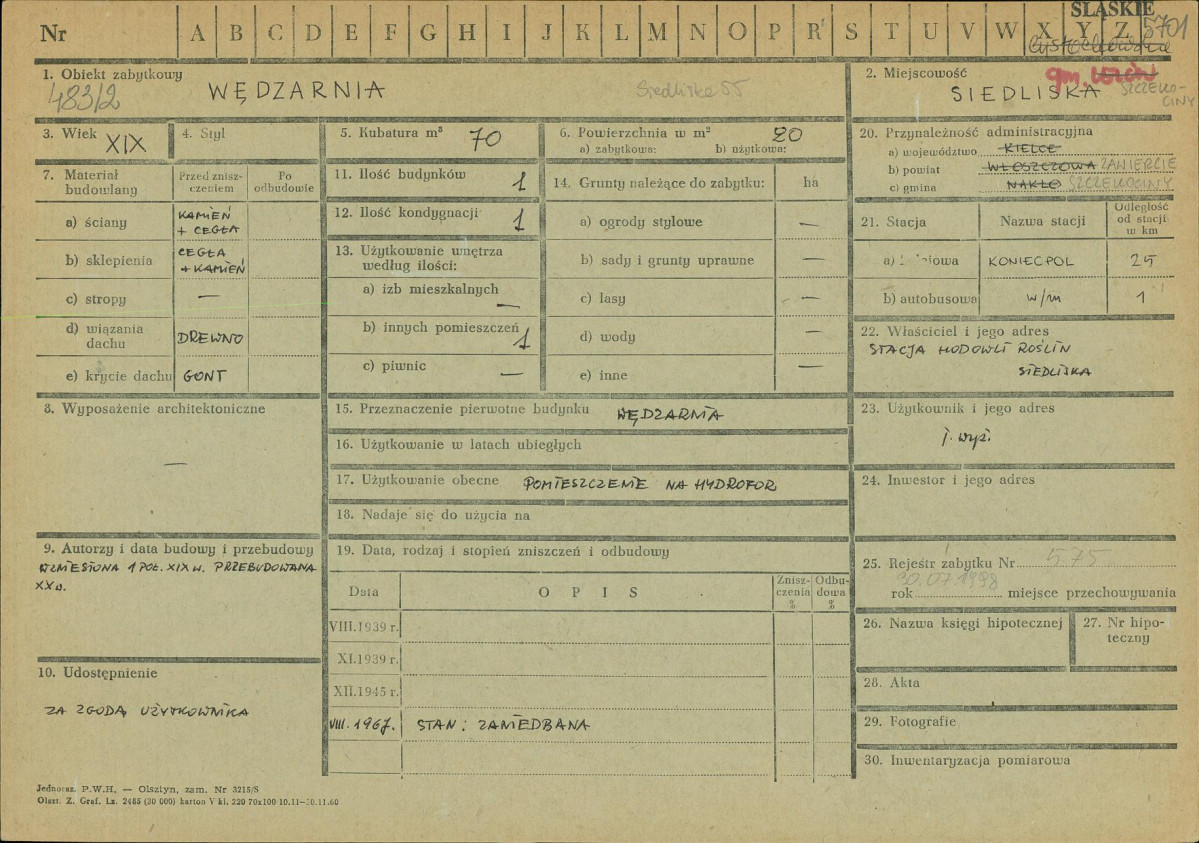 ŚLĄSKIE
Nr A B C D E F G H I J K L M N O P R S T U V W X Y Z 5701
1. Obiekt zabytkowy
483/2 WĘDZARNIA Siedliska 55
2. Miejscowość
gm.
SIEDLISKA SZCZEKO-
CINY
3. Wiek XIX
4. Styl
5. Kubatura m³ 70
6. Powierzchnia w m² 20
a) zabytkowa: b) użytkowa:
7. Materiał
budowlany
Przed znisz-
czeniem
Po
odbudowie
a) ściany KAMIEŃ
+ CEGŁA
b) sklepienia CEGŁA
+ KAMIEŃ
c) stropy —
d) wiązania
dachu DREWNO
e) krycie dachu GONT
8. Wyposażenie architektoniczne
—
9. Autorzy i data budowy i przebudowy
WZNIESIONA 1 POŁ. XIX w. PRZEBUDOWANA
XX w.
10. Udostępnienie
ZA ZGODĄ UŻYTKOWNIKA
11. Ilość budynków 1
12. Ilość kondygnacji 1
13. Użytkowanie wnętrza
według ilości:
a) izb mieszkalnych —
b) innych pomieszczeń 1
c) piwnic —
14. Grunty należące do zabytku: ha
a) ogrody stylowe —
b) sady i grunty uprawne —
c) lasy —
d) wody —
e) inne —
15. Przeznaczenie pierwotne budynku WĘDZARNIA
16. Użytkowanie w latach ubiegłych
17. Użytkowanie obecne POMIESZCZENIE NA HYDROFOR
18. Nadaje się do użycia na
19. Data, rodzaj i stopień zniszczeń i odbudowy
Data OPIS Znisz-
czenia
%
Odbu-
dowa
%
VIII.1939 r.
XI.1939 r.
XII.1945 r.
VIII.1967r. STAN: ZANIEDBANA
20. Przynależność administracyjna
a) województwo KIELCE
b) powiat WŁOSZCZOWA ZAWIERCIE
c) gmina NAKŁO SZCZEKOCINY
21. Stacja Nazwa stacji Odległość
od stacji
w km
KONIECPOL 25
b) autobusowa w/m 1
22. Właściciel i jego adres
STACJA HODOWLI ROŚLIN
SIEDLISKA
23. Użytkownik i jego adres
j. wyż.
24. Inwestor i jego adres
25. Rejestr zabytku Nr 575
rok 30.07.1998 miejsce przechowywania
26. Nazwa księgi hipotecznej
27. Nr hipo-
teczny
28. Akta
29. Fotografie
30. Inwentaryzacja pomiarowa
Jednoraz. P.W.H. — Olsztyn, zam. Nr 3215/S
Olszt. Z. Graf. Lz. 2485 (30 000) karton V kl. 220 70x100 10.11—30.11.60